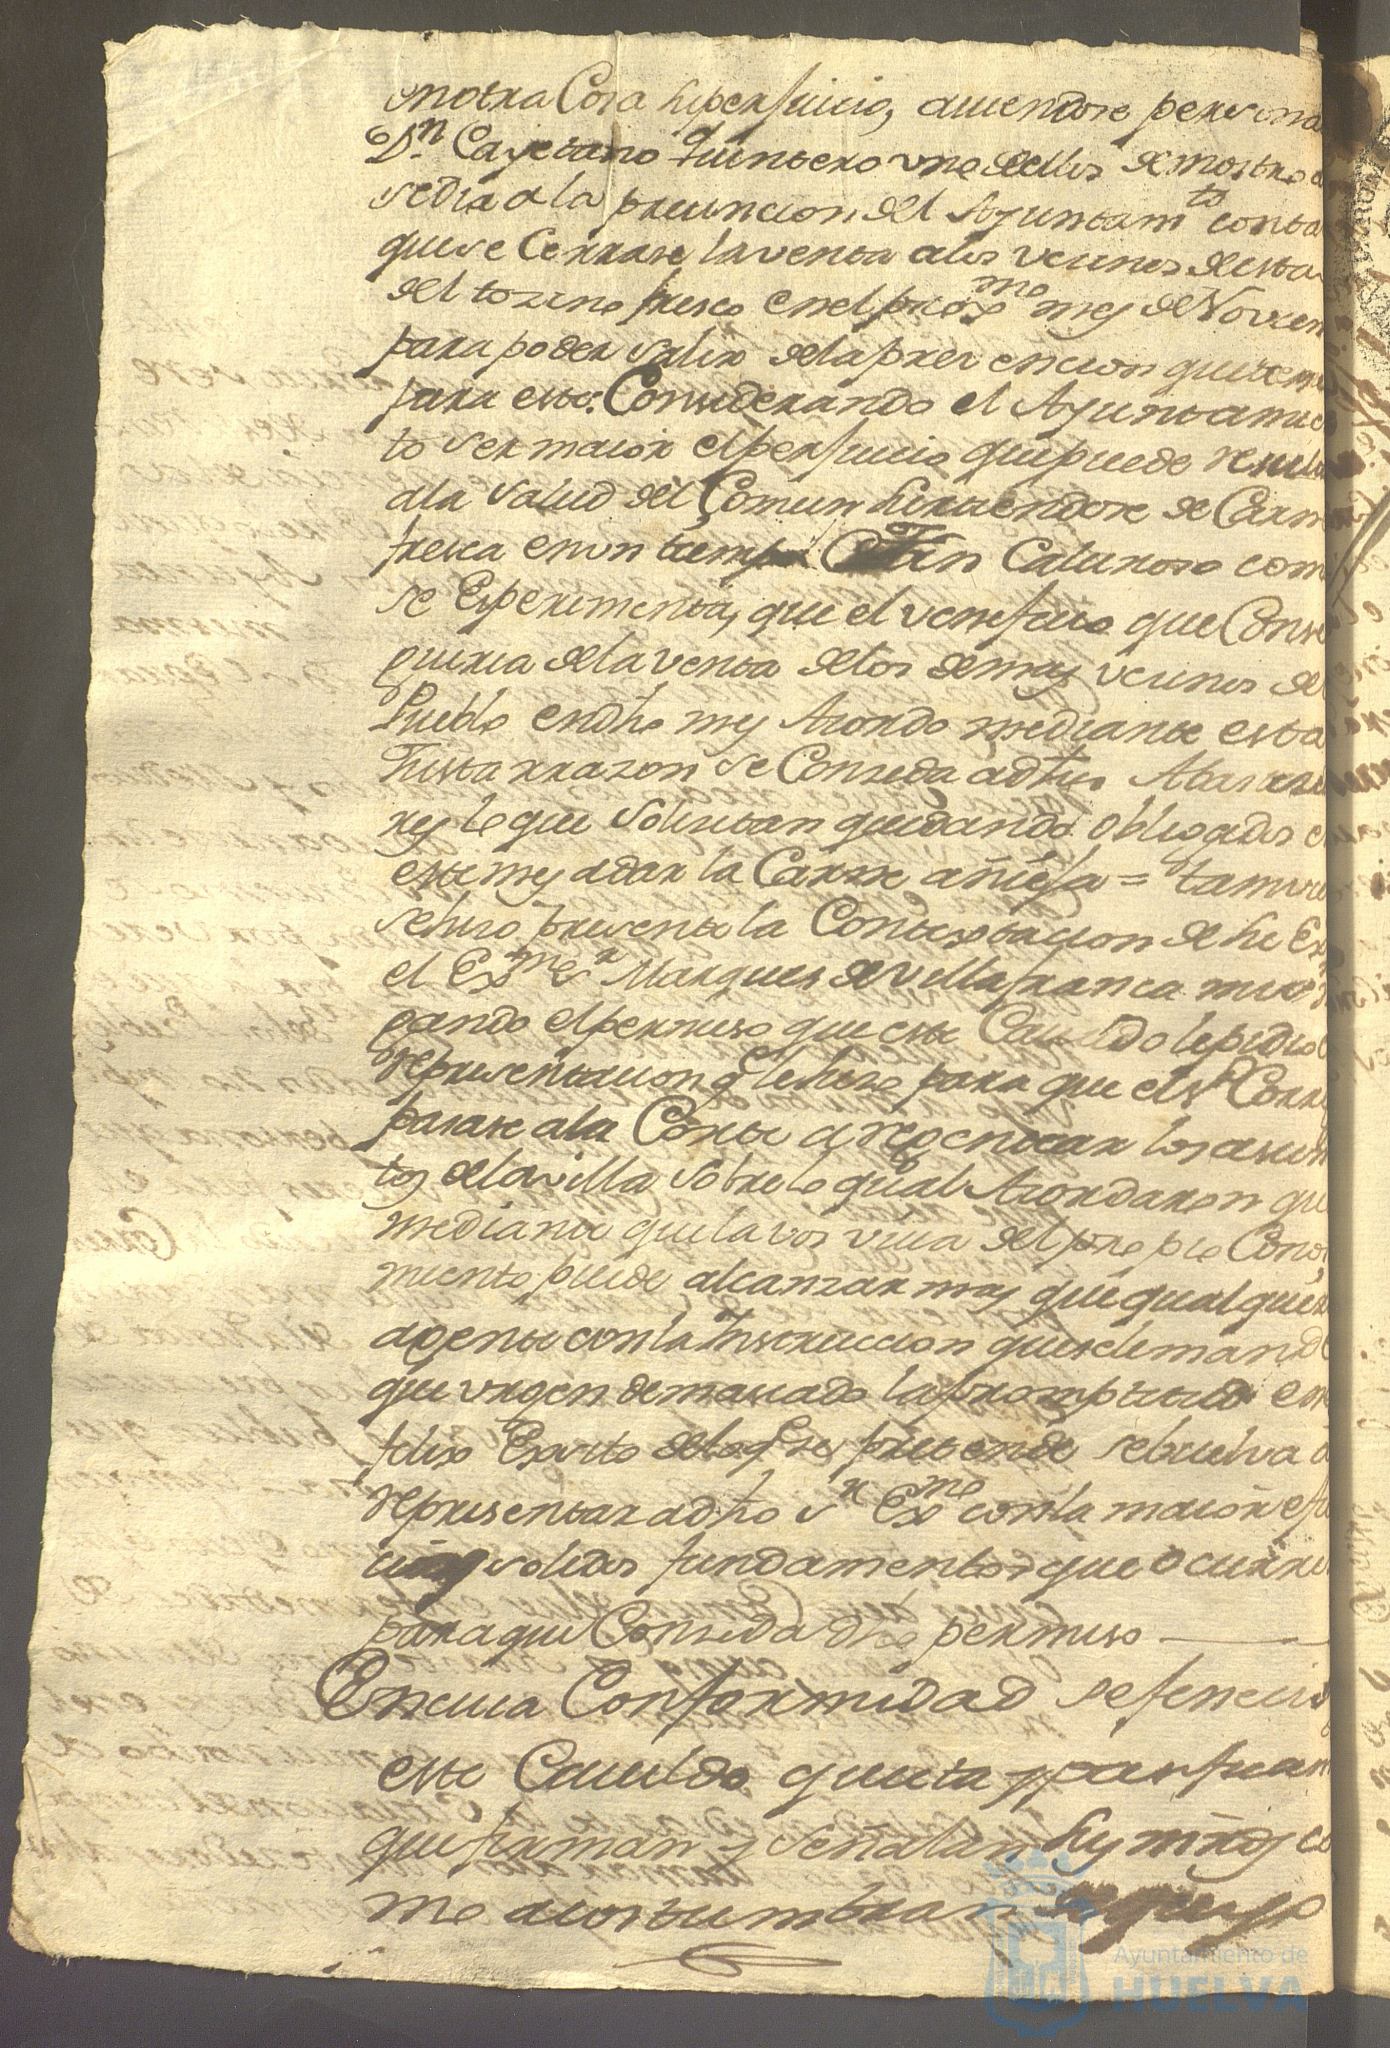 enotra Cosa superjuicio, auiendose persona
Dn Cayetano Quintero uno dellos demostro
sedia a la precuncion del Ayuntamto conta
quese Cerrase la venta alos vecinos desta
del tozino fresco enel proxmo mes de Novien
para poder salir dela prevencion quetem
para esto. Considerando el Ayuntamie
to ser maior elperjuicio quepuede resul
ala salud del Comun hirviendose de Carn
fresca enun tiempo tan Caluroso com
se Experimenta, que el veneficio que Conse
guiria dela venta delos demas vecinos del
Pueblo endho mes Acordo mediante esta
Justa rrazon se Conseda adhos Abasese
res lo que solisitan quedando obligados e
este mes adar la Carne añeja = tamvi
sehizo presente la Contextacion de su Ex
el Exmo Sr Marques de Villafranca mio
gando elpermiso que este Cavildo lepidio
representacion q lehizo para que elSr Corr
pasase ala Corte a repentear los asun
tos dela villa sobre lo qual Acordaron qu
mediante quela vos viva del propio Cono
miento puede alcanzar mas que qualquier
agente conla Instruccion quesele mand
que urgen demasiado la promptitud en
felix Exsito delo q se pretende sebuelva a
representar adho Sr Exmo conla maior efi
solidos fundamentos que ocurre
paraque Conseda dho permiso
Encuia Conformidad sefenecio
este Cavildo quieta y pasificam
que firman y señalan sus mrds co
mo acostumbran
Ayuntamiento de
HUELVA